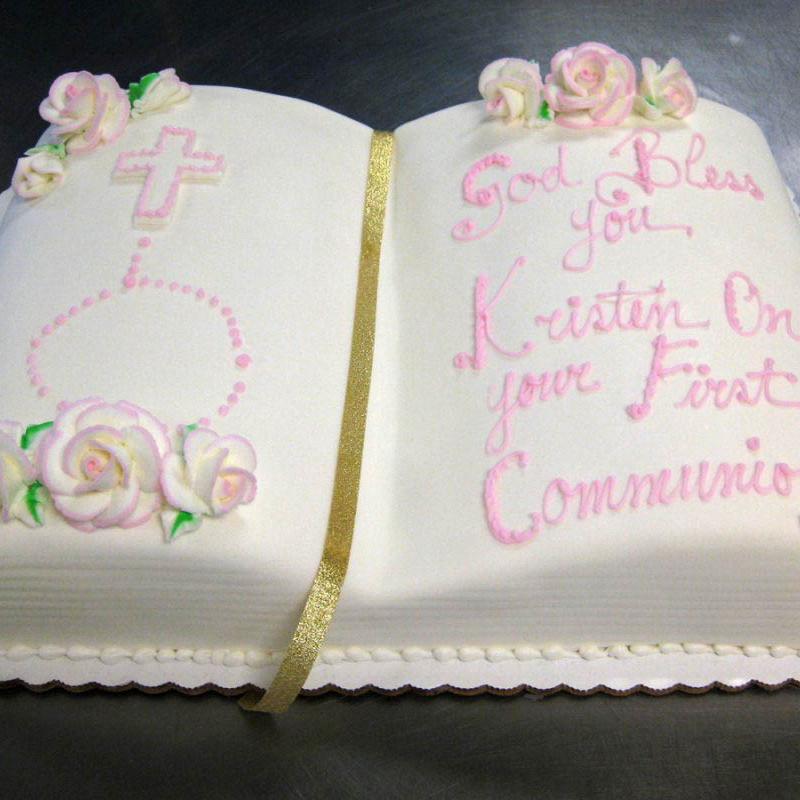 God Bless
you
Kristen On
your First
Communio